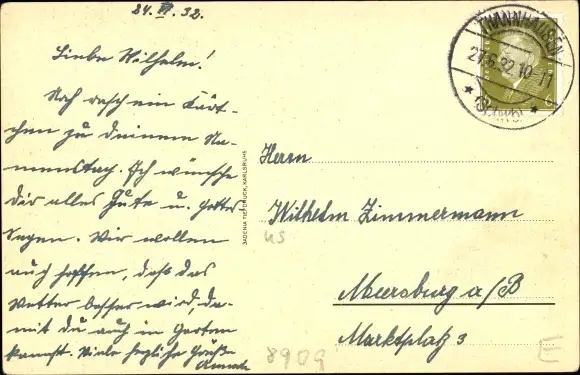 24. VI. 32.
Liebe Wilhelm!
Noch rasch ein Kärt-
chen zu Deinem Na-
menstag. Ich wünsche
Dir alles Gute u. Gottes
Segen. Wir wollen
auch hoffen, daß das
Wetter besser wird, da-
mit du auch in Garten
kannst. Viele herzliche Grüße
THANNHAUSEN
27.6.32.10-11
* (SCHWB) *
BADENIA TIEFDRUCK, KARLSRUHE
Herrn
Wilhelm Zimmermann
Meersburg a/B
Marktplatz 3
us
8909
E